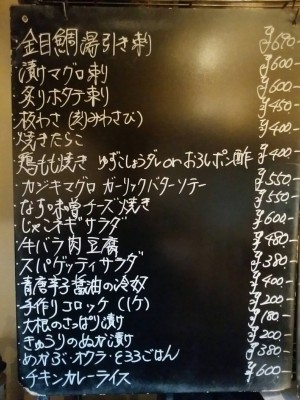 金目鯛湯引き刺 ¥690-
漬けマグロ刺 ¥600-
炙りホタテ刺 ¥600-
板わさ(刻みわさび) ¥450-
焼きたらこ ¥400-
鶏もも焼き ゆずこしょうダレorおろしポン酢 ¥400-
カジキマグロ ガーリックバターソテー ¥550-
なす味噌チーズ焼き ¥550-
じゃこネギサラダ ¥600-
牛バラ肉豆腐 ¥480-
スパゲッティサラダ ¥380-
青唐辛子醤油の冷奴 ¥400-
手作りコロッケ(1ケ) ¥200-
大根のさっぱり漬け ¥180-
きゅうりのぬか漬け ¥200-
めかぶ・オクラ・とろろごはん ¥380-
チキンカレーライス ¥600-